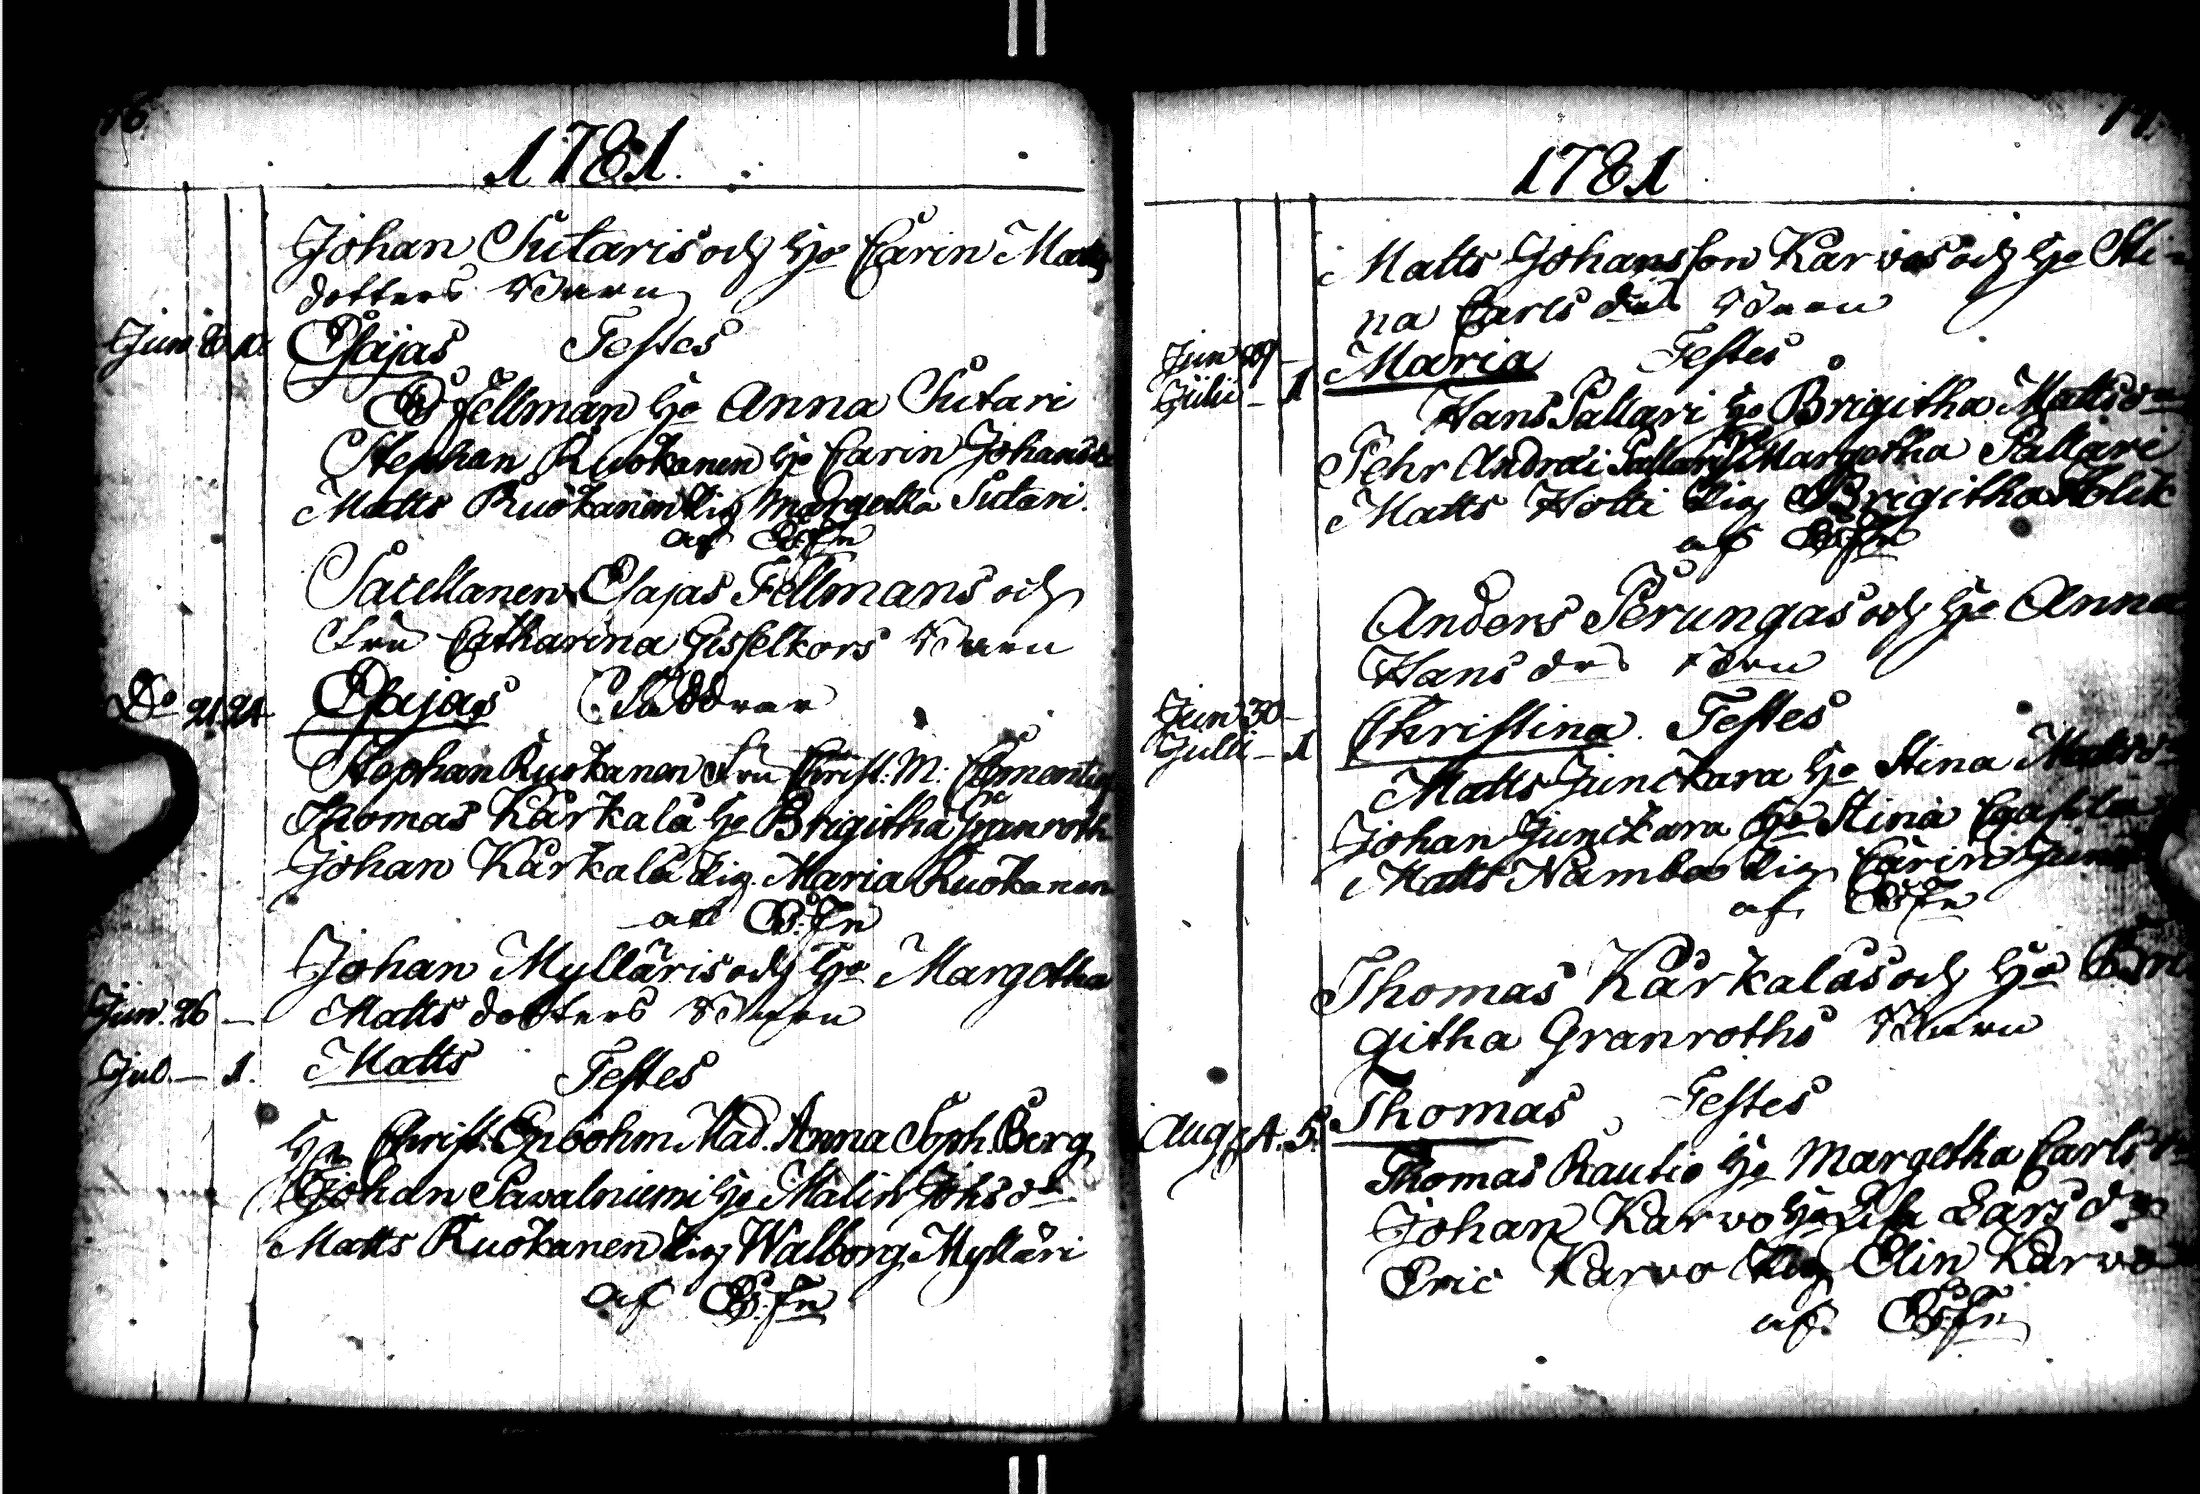 76.
1781.
Johan Sutaris och Ho Carin Matts
dotters Barn
Jun. 8. 10. Esajas Testes
Es Fellman Ho Anna Sutari
Stephan Ruokanen Ho Carin Johansd
Matts Ruokanen Pig Margetha Sutari.
af Es. Fn
Sacellanen Esajas Fellmans och
Fru Catharina Gisselkors Barn
Do 21. 24. Esajas Faddrar
Stephan Ruokanen Fru Christ: M:
Thomas Kärkälä Ho Brigitha Granroth
Johan Kärkälä Pig. Maria Ruokanen
af Es. Fn
Johan Mylläris och Ho Margetha
Jun. 26 — Matts dotters Barn
Jul. — 1. Matts Testes
Hr Christ. Enbohm Mad. Anna Soph. Berg
Johan Sawalniemi Ho Malin Johsdr
Matts Ruokanen Pig Walborg Mylläri
af Es. Fn
77.
1781
Matts Johansson Karvos och Ho Sti-
na Carls drs Barn
Jun 29 — Maria Testes
Julii — 1
Hans Sallari Ho Brigitha Mattsdr
Pehr Andrai Sallari Ho Margetha Sallari
Matts Hotti Pig Brigitha
af Es. Fn
Anders Perungas och Ho Anna
Hans drs Barn
Jun 30 — Christina. Testes
Julii — 1
Matts Junckara Ho Stina Mattsdr
Johan Junckara Ho Stina
Matts Namba Pig Carin
af Es. Fn
Thomas Kärkäläs och Ho Bri
githa Granroths Barn
Aug. 4. 5. Thomas Testes
Thomas Rautio Ho Margetha Carlsdr
Johan Karvo Ho Lisa Lars dr
Eric Karvo Pig Elin Karvo
af. Es. Fn